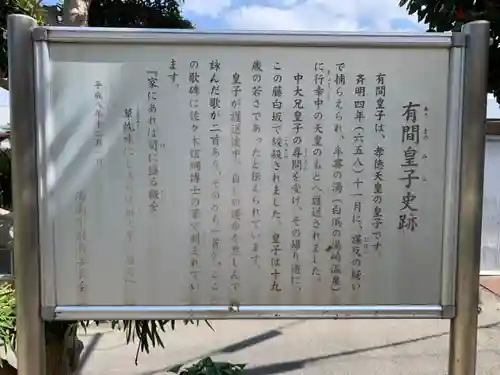 有間皇子史跡
有間皇子は、孝徳天皇の皇子です。
斉明四年(六五八)十一月に、謀反の疑い
で捕えられ、牟婁の湯(白浜の湯崎温泉)
に行幸中の天皇のもとへ護送されました。
中大兄皇子の尋問を受け、その帰り道に、
この藤白坂で絞殺されました。皇子は十九
歳の若さであったと伝えられています。
皇子が護送途中、自らの運命を悲しんで
詠んだ歌が二首あり、そのうち一首が、ここ
の歌碑に佐々木信綱博士の筆で刻まれてい
ます。
『家にあれば笥に盛る飯を
草枕
平成八年十二月